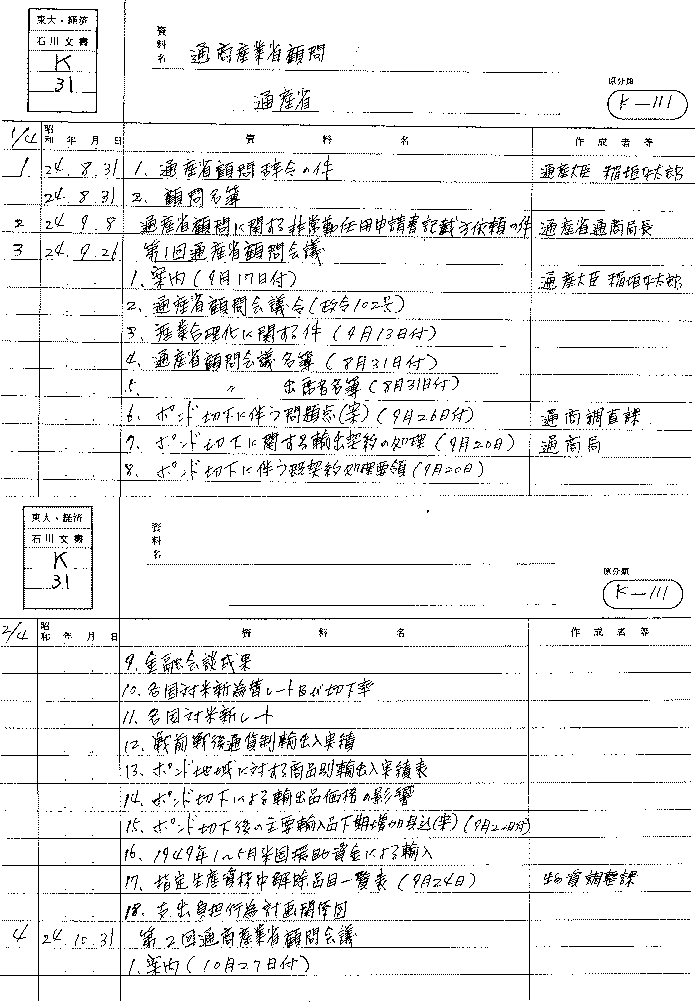 東大・経済
石川文書
K
31
資料名
通商産業省顧問
通産省
原分類
K-111
1/4 昭和 年 月 日 資 料 名 作成者等
1 24. 8. 31 1. 通産省顧問辞令の件 通産大臣 稲垣平太郎
24. 8. 31 2. 顧問名簿
2 24 9. 8 通産省顧問に関する非常勤任用申請書記載方依頼の件 通産省通商局長
3 24. 9. 26 第1回通産省顧問会議
1. 案内(9月17日付) 通産大臣 稲垣平太郎
2. 通産省顧問会議令(政令102号)
3. 産業合理化に関する件 (9月13日付)
4. 通産省顧問会議名簿 (8月31日付)
5. 〃 出席者名簿(8月31日付)
6. ポンド切下に伴う問題点(案) (9月26日付) 通商調査課
7. ポンド切下に関する輸出契約の処理 (9月20日) 通商局
8. ポンド切下に伴う既契約処理要領(9月20日)
東大・経済
石川文書
K
31
資料名
原分類
K-111
2/4 昭和 年 月 日 資 料 名 作成者等
9. 金融会談成果
10. 各国対米新為替レート及び切下率
11. 各国対米新レート
12. 戦前戦後通貨別輸出入実績
13. ポンド地域に対する商品別輸出入実績表
14. ポンド切下による輸出品価格の影響
15. ポンド切下後の主要輸入品下期増加見込(案)
16. 1949年1~5月米国援助資金による輸入
17. 指定生産資材中解除品目一覧表 (9月24日) 物資調整課
18. 支出負担行為計画関係図
4 24. 10. 31 第2回通商産業省顧問会議
1. 案内(10月27日付)